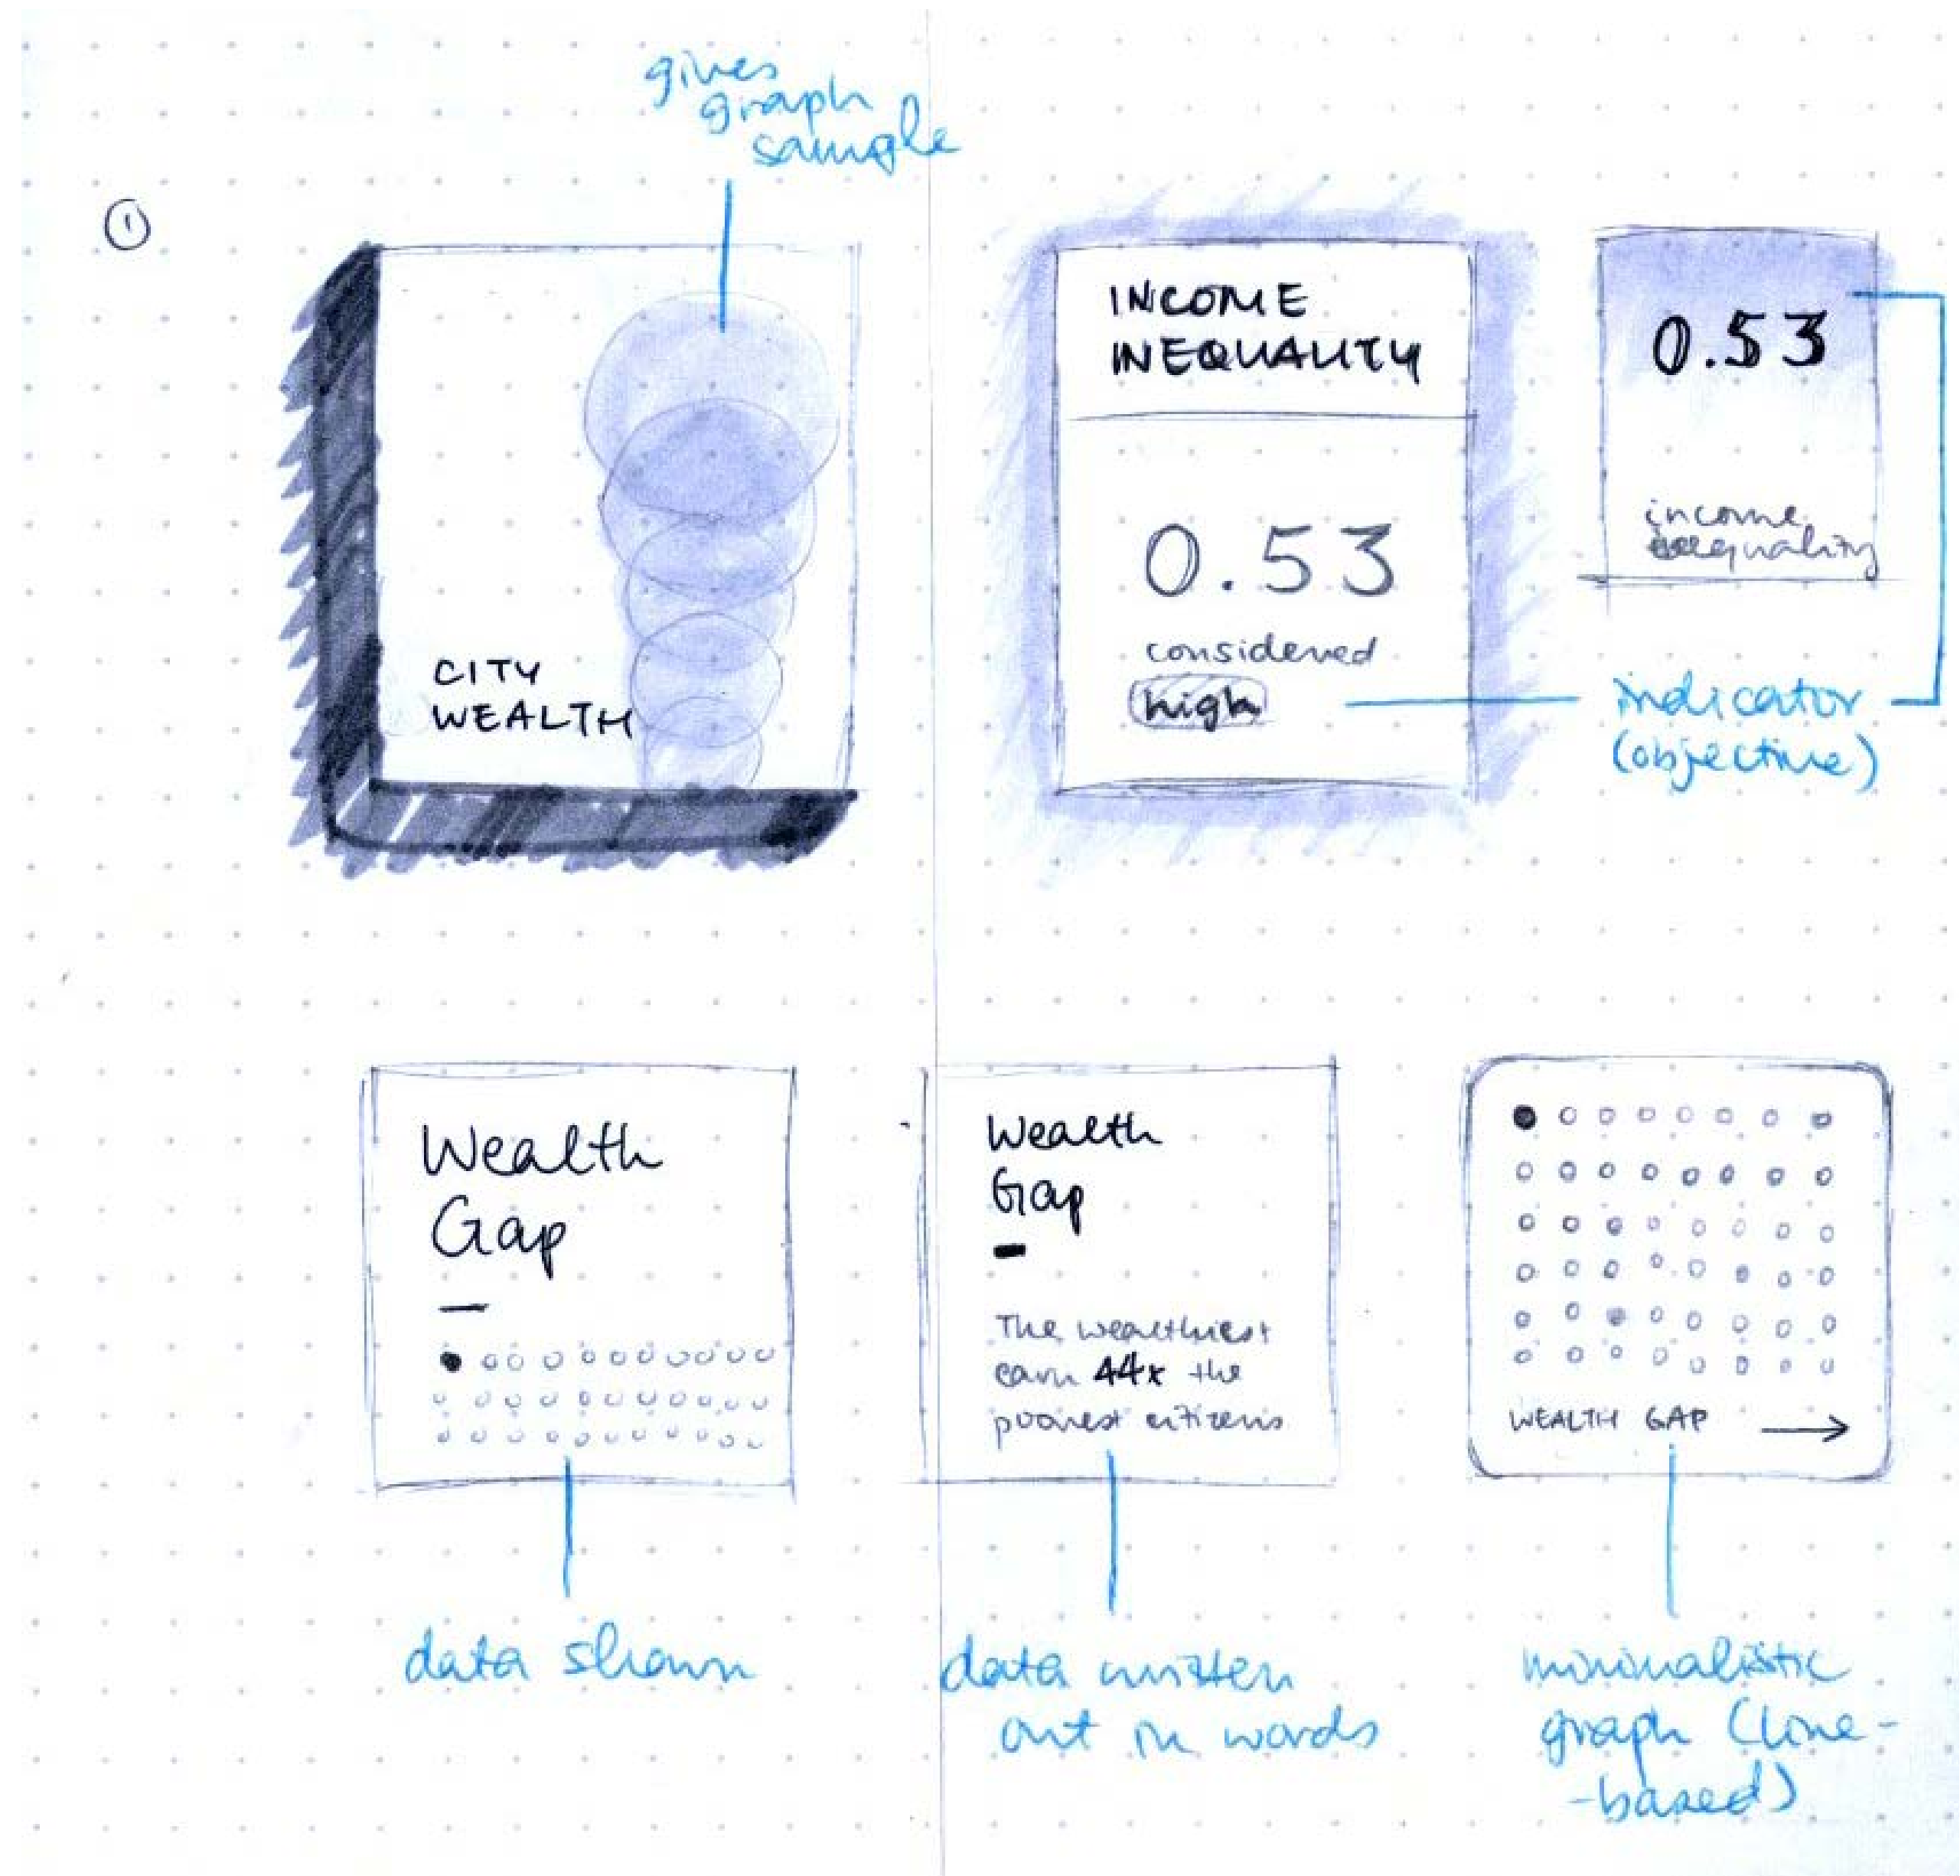 gives
graph
sample
1
CITY
WEALTH
INCOME
INEQUALITY
0.53
considered
high
0.53
income
inequality
indicator
(objective)
Wealth
Gap
Wealth
Gap
The wealthiest
earn 44x the
poorest citizens
WEALTH GAP →
data shown
data written
out in words
minimalistic
graph (line-
-based)